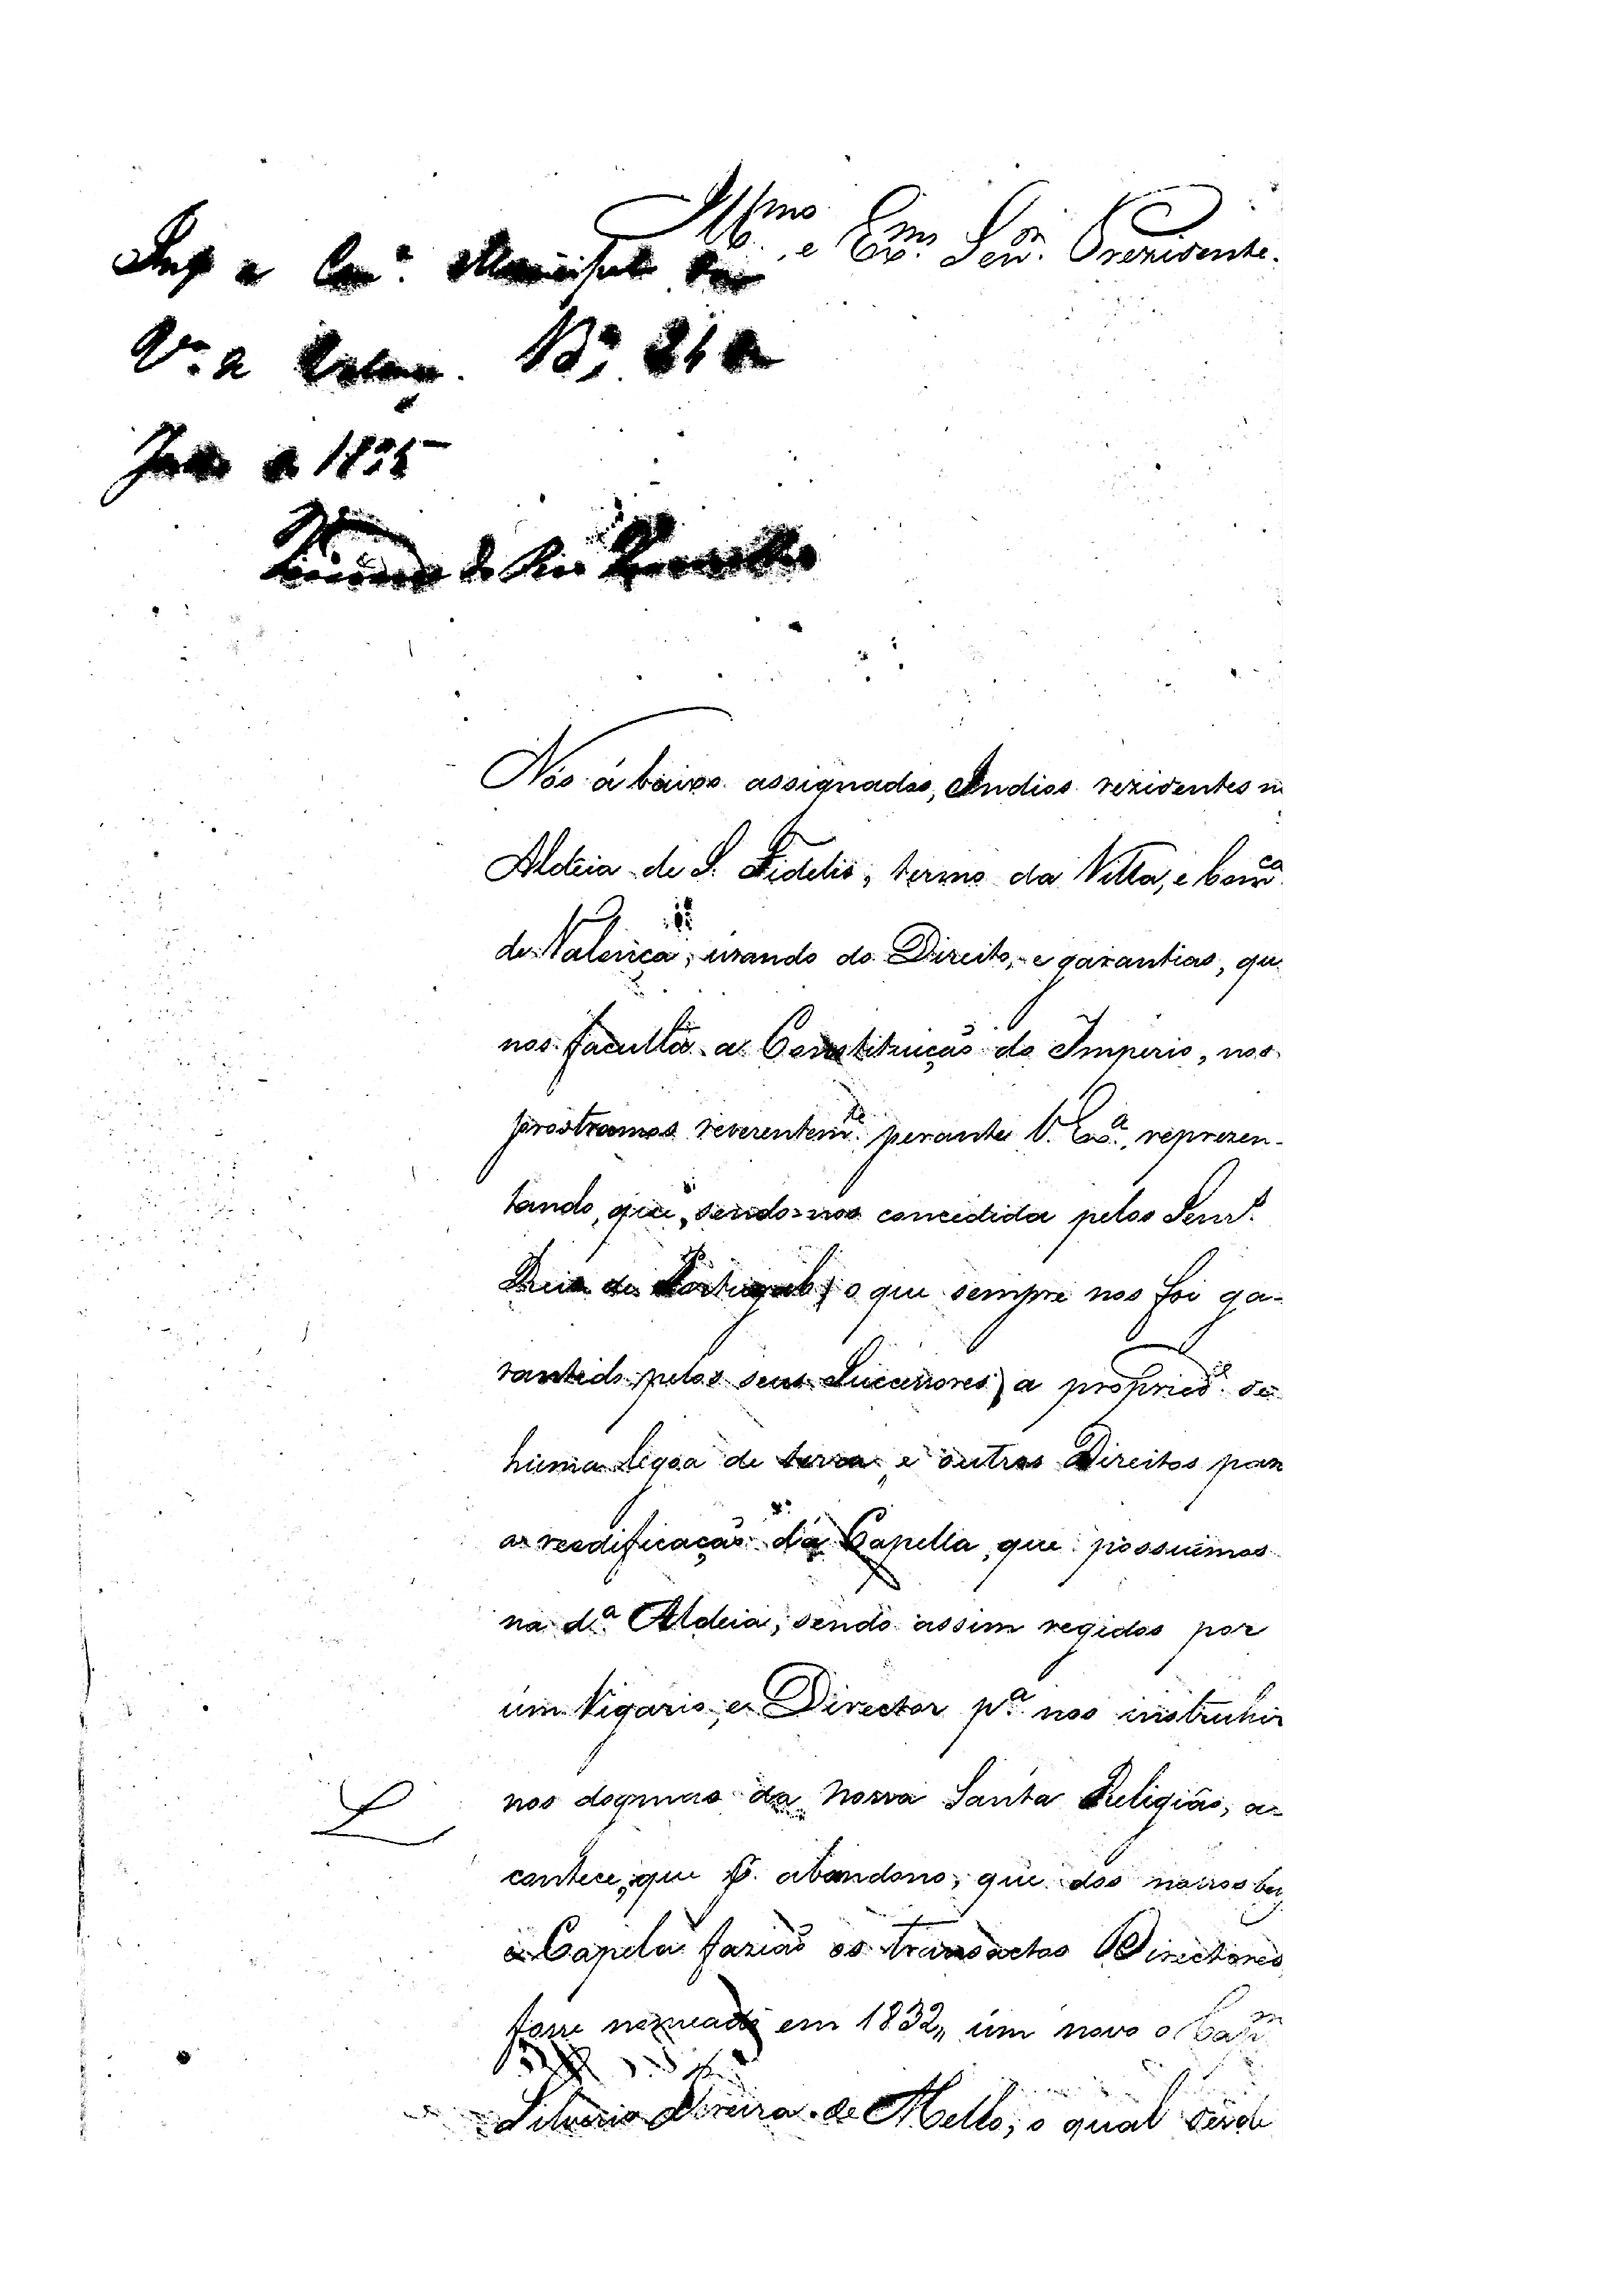 Illmo. e Exmo. Senor. Prezidente.
Inf a Camª. Municipal da
Vª. de Valença. Bª, 21 de
de 1835
Nós á baixo assignados, Indios rezidentes n
Aldeia de S. Fidelis, termo da Villa, e Comca.
de Valença, uzando do Direito, e garantias, qu
nos faculta a Constituição do Imperio, nos
prostramos reverentemte. perante V. Exª., reprezen-
tando, que, sendo-nos concedida pelos Senrs.
Reis de Portugal, (o que sempre nos foi ga-
rantido pelos seus Successores) a propriede. de
huma legoa de terra, e outros Direitos para
a reedificação da Capella, que possuimos
na dª. Aldeia, sendo assim regidos por
um Vigario, e Director pª. nos instruhir
nos dogmas da Nossa Santa Religião, a-
contece, que p. abandono, que dos nossos be
e Capela fazião os transactos Directores
fosse nomeado em 1832, um novo o Capm.
Silverio Pereira de Mello, o qual desde